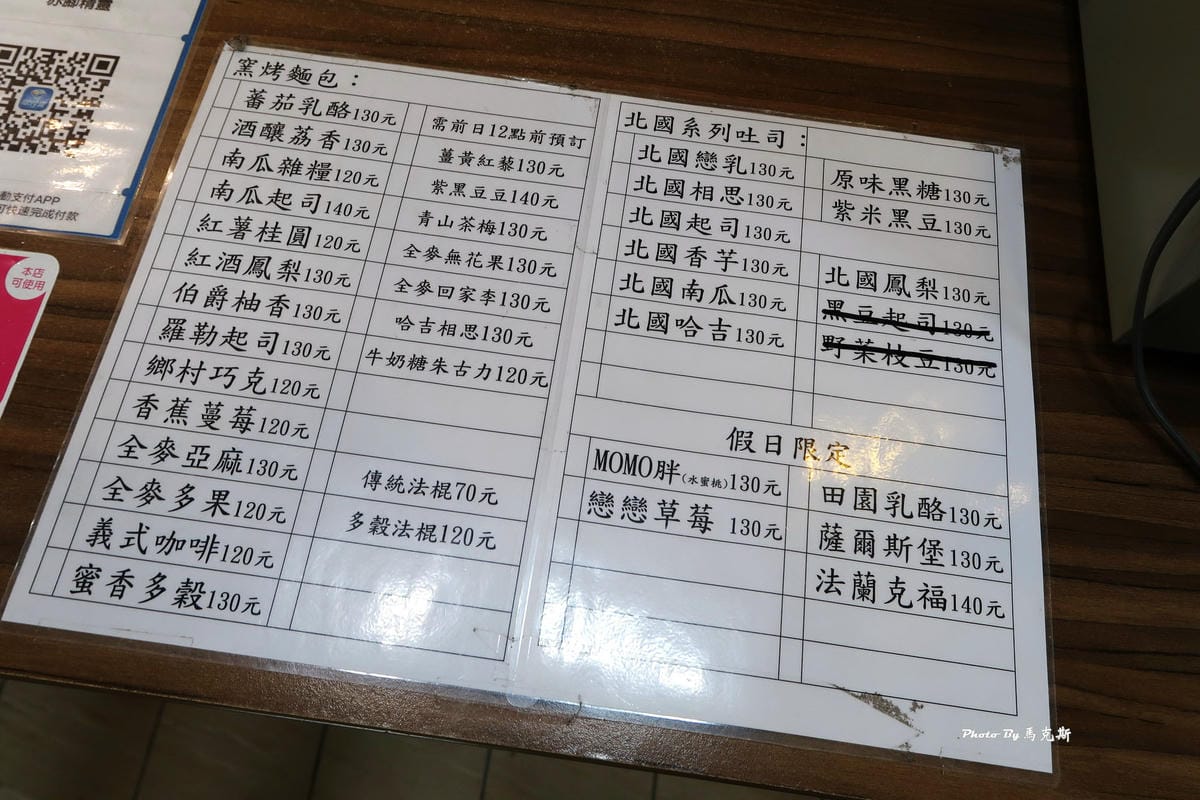 赤腳精靈
動支付APP
可快速完成付款
本店
可使用
窯烤麵包：
蕃茄乳酪130元
酒釀荔香130元
南瓜雜糧120元
南瓜起司140元
紅薯桂圓120元
紅酒鳳梨130元
伯爵柚香130元
羅勒起司130元
鄉村巧克120元
香蕉蔓莓120元
全麥亞麻130元
全麥多果120元
義式咖啡120元
蜜香多穀130元
需前日12點前預訂
薑黃紅藜130元
紫黑豆豆140元
青山茶梅130元
全麥無花果130元
全麥回家李130元
哈吉相思130元
牛奶糖朱古力120元
傳統法棍70元
多穀法棍120元
北國系列吐司：
北國戀乳130元
北國相思130元
北國起司130元
北國香芋130元
北國南瓜130元
北國哈吉130元
原味黑糖130元
紫米黑豆130元
北國鳳梨130元
黑豆起司130元
野菜枝豆130元
假日限定
MOMO胖(水蜜桃)130元
戀戀草莓 130元
田園乳酪130元
薩爾斯堡130元
法蘭克福140元
Photo By 馬克斯